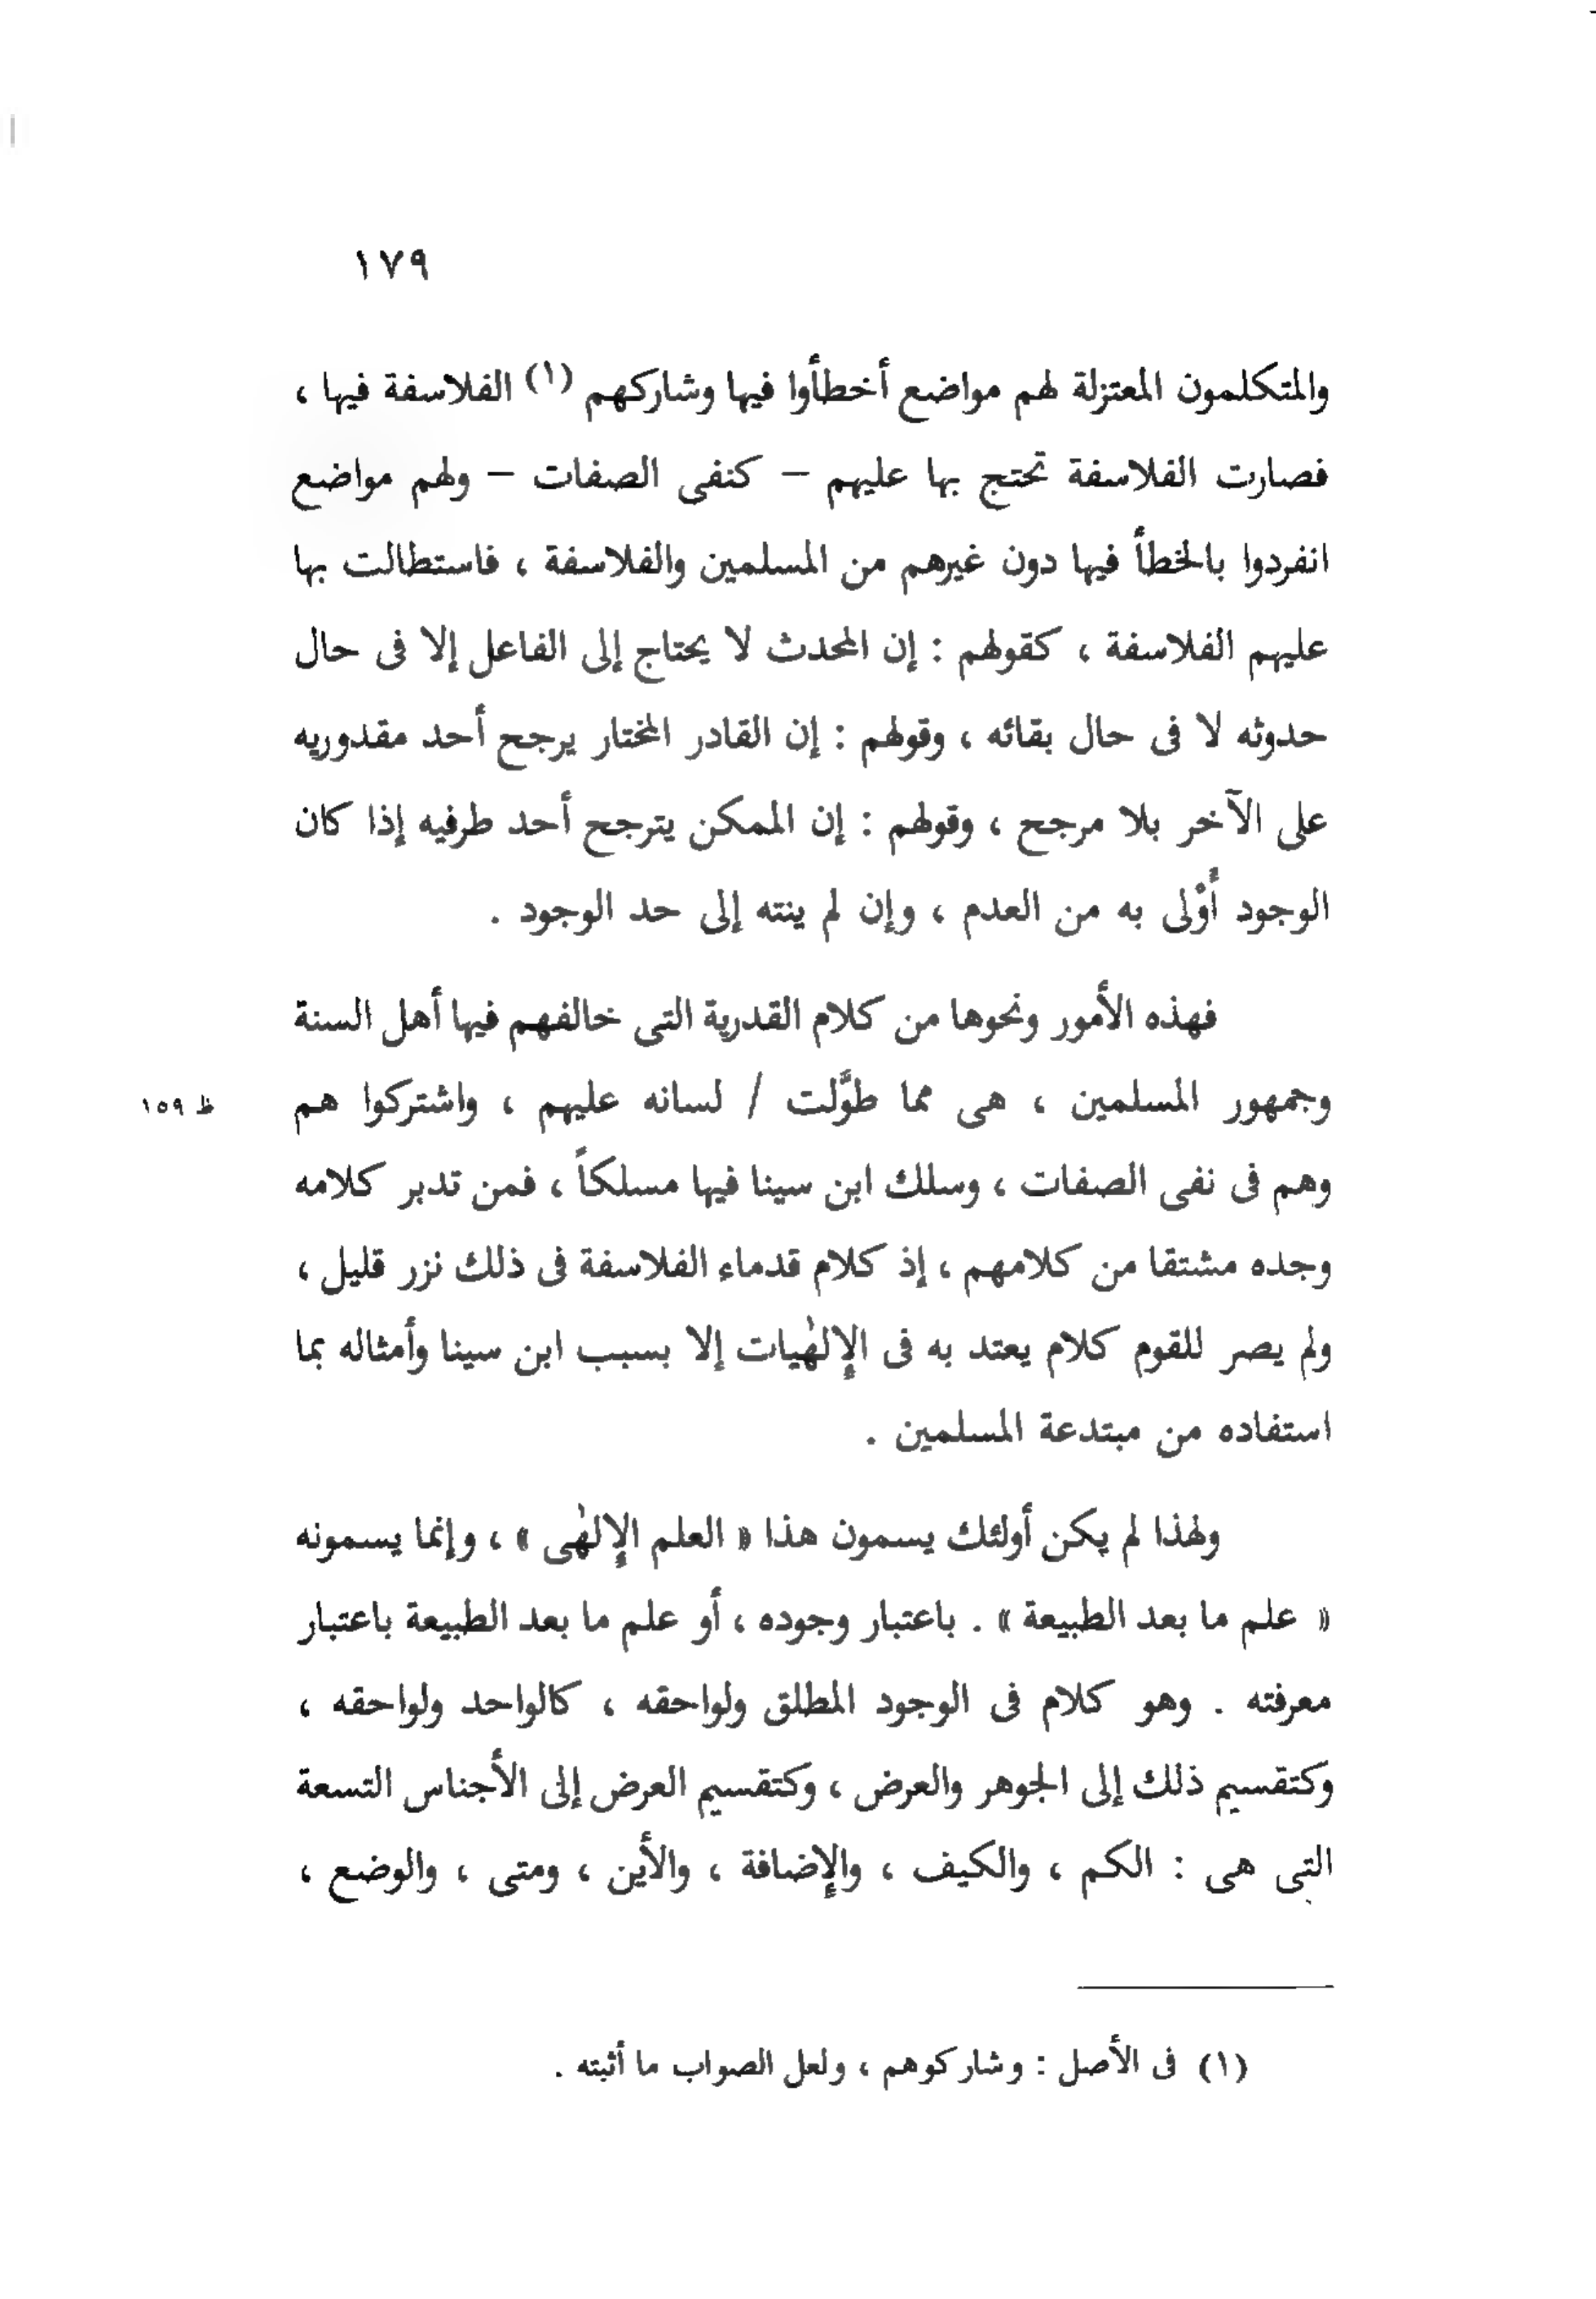 ١٧٩
والمتكلمون المعتزلة لهم مواضع أخطأوا فيها وشاركهم (١) الفلاسفة فيها ،
فصارت الفلاسفة تحتج بها عليهم – كنفى الصفات – ولهم مواضع
انفردوا بالخطأ فيها دون غيرهم من المسلمين والفلاسفة ، فاستطالت بها
عليهم الفلاسفة ، كقولهم : إن المحدث لا يحتاج إلى الفاعل إلا فى حال
حدوثه لا فى حال بقائه ، وقولهم : إن القادر المختار يرجح أحد مقدوريه
على الآخر بلا مرجح ، وقولهم : إن الممكن يترجح أحد طرفيه إذا كان
الوجود أَوْلى به من العدم ، وإن لم ينته إلى حد الوجود .
فهذه الأمور ونحوها من كلام القدرية التى خالفهم فيها أهل السنة
وجمهور المسلمين ، هى مما طوَّلت / لسانه عليهم ، واشتركوا هم
ظ ١٥٩
وهم فى نفى الصفات ، وسلك ابن سينا فيها مسلكاً ، فمن تدبر كلامه
وجده مشتقا من كلامهم ، إذ كلام قدماء الفلاسفة فى ذلك نزر قليل ،
ولم يصر للقوم كلام يعتد به فى الإلهٰيات إلا بسبب ابن سينا وأمثاله بما
استفاده من مبتدعة المسلمين .
ولهذا لم يكن أولئك يسمون هذا « العلم الإلهٰى » ، وإنما يسمونه
« علم ما بعد الطبيعة » . باعتبار وجوده ، أو علم ما بعد الطبيعة باعتبار
معرفته . وهو كلام فى الوجود المطلق ولواحقه ، كالواحد ولواحقه ،
وكتقسيم ذلك إلى الجوهر والعرض ، وكتقسيم العرض إلى الأجناس التسعة
التى هى : الكم ، والكيف ، والإضافة ، والأين ، ومتى ، والوضع ،
(١) فى الأصل : وشاركوهم ، ولعل الصواب ما أثبته .